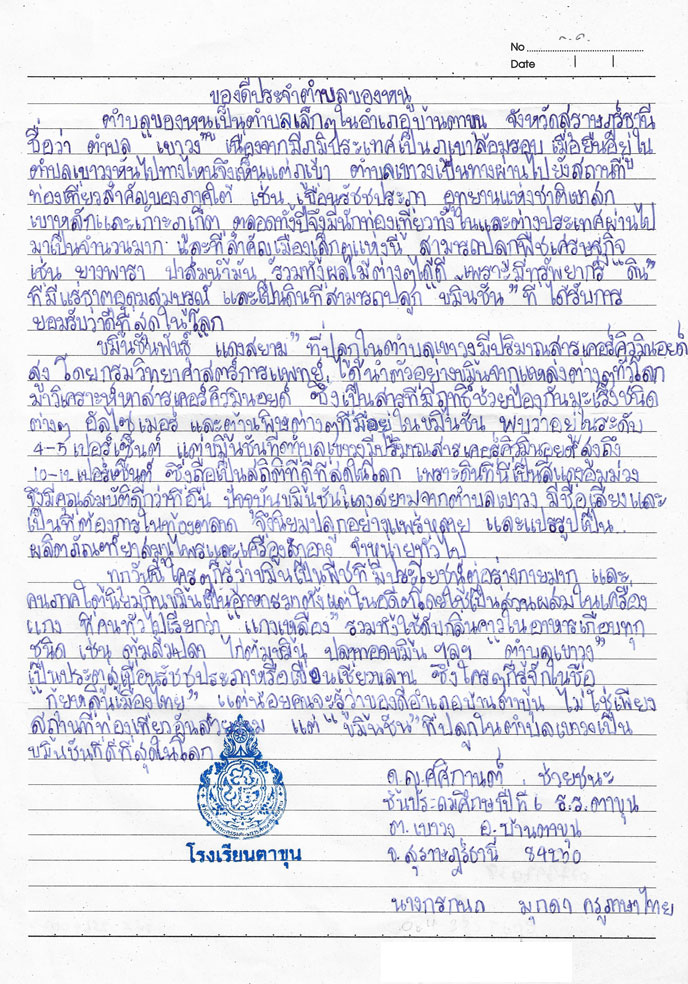 No
Date
ของดีประจำตำบลของหนู
ตำบลของหนูเป็นตำบลเล็กๆในอำเภอบ้านตาขุน จังหวัดสุราษฎร์ธานี
ชื่อว่า ตำบล "เขาวง" เนื่องจากมีภูมิประเทศเป็นภูเขาล้อมรอบ เมื่อยืนอยู่ใน
ตำบลเขาวงหันไปทางไหนจึงเห็นแต่ภูเขา ตำบลเขาวงเป็นทางผ่านไปยังสถานที่
ท่องเที่ยวสำคัญของภาคใต้ เช่น เขื่อนรัชชประภา อุทยานแห่งชาติเขาสก
เขาหลักและเกาะภูเก็ต ตลอดทั้งปีจึงมีนักท่องเที่ยวทั้งในและต่างประเทศผ่านไป
มาเป็นจำนวนมาก และที่สำคัญเมืองเล็กๆแห่งนี้ สามารถปลูกพืชเศรษฐกิจ
เช่น ยางพารา ปาล์มน้ำมัน รวมทั้งผลไม้ต่างๆได้ดี เพราะมีทรัพยากร "ดิน"
ที่มีแร่ธาตุอุดมสมบูรณ์ และเป็นดินที่สามารถปลูก "ขมิ้นชัน" ที่ได้รับการ
ยอมรับว่าดีที่สุดในโลก
ขมิ้นชันพันธุ์ "แดงสยาม" ที่ปลูกในตำบลเขาวงมีปริมาณสารเคอร์คิวมินอยด์
สูง โดยกรมวิทยาศาสตร์การแพทย์ ได้นำตัวอย่างขมิ้นจากแหล่งต่างๆทั่วโลก
มาวิเคราะห์หาสารเคอร์คิวมินอยด์ ซึ่งเป็นสารที่มีฤทธิ์ช่วยป้องกันมะเร็งชนิด
ต่างๆ อัลไซเมอร์ และต้านพิษต่างๆที่มีอยู่ในขมิ้นชัน พบว่าอยู่ในระดับ
4-5 เปอร์เซ็นต์ แต่ขมิ้นชันที่ตำบลเขาวงมีปริมาณสารเคอร์คิวมินอยด์สูงถึง
10-12 เปอร์เซ็นต์ ซึ่งถือเป็นสถิติที่ดีที่สุดในโลก เพราะดินที่นี่เป็นสีแดงอมม่วง
จึงมีคุณสมบัติดีกว่าที่อื่น ปัจจุบันขมิ้นชันแดงสยามจากตำบลเขาวง มีชื่อเสียงและ
เป็นที่ต้องการในท้องตลาด จึงนิยมปลูกอย่างแพร่หลาย และแปรรูปเป็น
ผลิตภัณฑ์ยาสมุนไพรและเครื่องสำอาง จำหน่ายทั่วไป
ทุกวันนี้ ใครๆก็รู้ว่าขมิ้นเป็นพืชที่มีประโยชน์ต่อร่างกายมาก และ
คนภาคใต้นิยมกินขมิ้นเป็นอาหารมาตั้งแต่ในอดีตโดยใช้เป็นส่วนผสมในเครื่อง
แกง ที่คนทั่วไปเรียกว่า "แกงเหลือง" รวมทั้งใช้ดับกลิ่นคาวในอาหารเกือบทุก
ชนิด เช่น ต้มส้มปลา ไก่ต้มขมิ้น ปลาทอดขมิ้น ฯลฯ "ตำบลเขาวง"
เป็นประตูสู่เขื่อนรัชชประภาหรือเขื่อนเชี่ยวหลาน ซึ่งใครๆก็รู้จักในชื่อ
"กุ้ยหลินเมืองไทย" แต่น้อยคนจะรู้ว่าของดีอำเภอบ้านตาขุน ไม่ใช่เพียง
สถานที่ท่องเที่ยวอันสวยงาม แต่ "ขมิ้นชัน" ที่ปลูกในตำบลเขาวงเป็น
ขมิ้นชันที่ดีที่สุดในโลก
ด.ญ.ศศิกานต์ ช่วยชนะ
ชั้นประถมศึกษาปีที่ 6 ร.ร.ตาขุน
ต.เขาวง อ.บ้านตาขุน
จ.สุราษฎร์ธานี 84230
โรงเรียนตาขุน
มุกดา ครูภาษาไทย